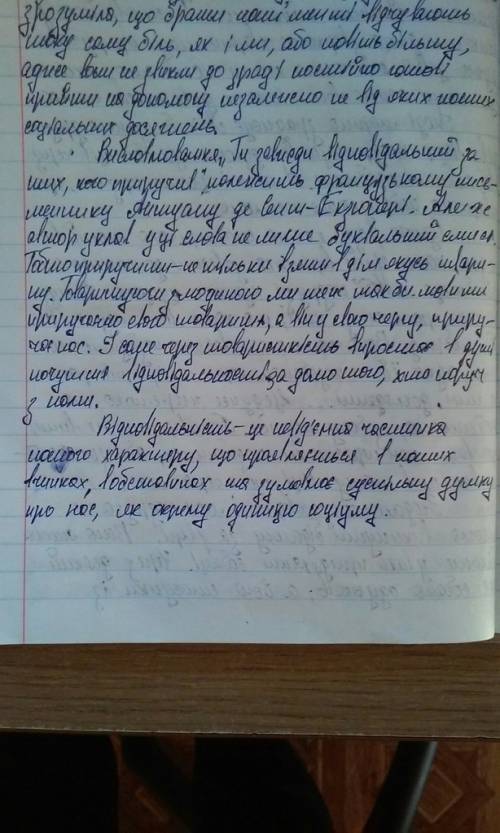 зрозуміла, що брати наші менші відчувають
таку саму біль, як і ми, або навіть більшу,
адже вони не звикли до зрад і постійно готові
прийти на допомогу незалежно не від яких наших
соціальних досягнень.
Висловлювання „Ти завжди відповідальний за
тих, кого приручив" належить французькому пись-
меннику Антуану де Сент-Екзюпері. Але же
автор уклав у ці слова не лише буквальний смисл.
Тобто приручити-не тільки взяти в дім якусь твари-
ну. Товаришуючи з людиною ми теж так би мовити
приручаємо свого товариша, а він у свою чергу, приру-
чає нас. І саме через товариськість виростає в душі
почуття відповідальності за долю того, хто поруч
з нами.
Відповідальність-це невід'ємна частинка
нашого характеру, що проявляється в наших
вчинках, в обставинах та зумовлює суспільну думку
про нас, як окрему одиницю соціуму.